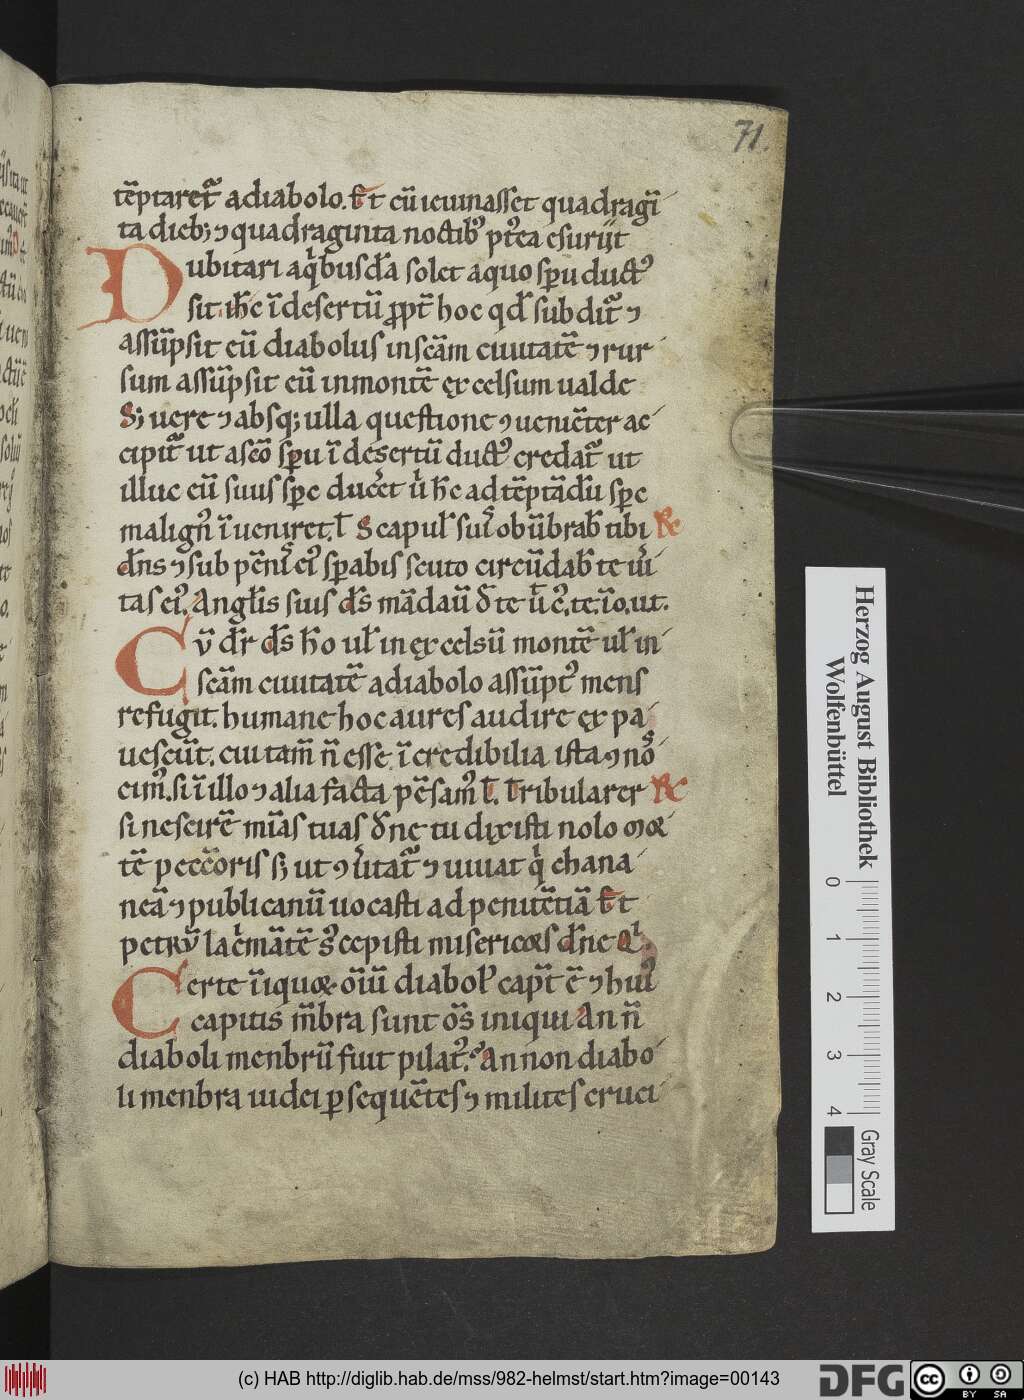 71.
tēptaret᷑ a diabolo. ⁊t cū ieiunasset quadragī
ta dieb; ⁊ quadraginta noctib' pt̾ea esuriit
Dubitari a q̇busdā solet a quo sp̄u duct'
sit ih̄c ī desertū ꝓpt̾ hoc qd̄ subdit᷑ ⁊
assūpsit eū diabolus in scām ciuitatē ⁊ rur
sum assūpsit eū in montē excelsum ualde
S; uere ⁊ absq; ulla questione ⁊ ueniēter ac
cipit᷑ ut a sc̄o sp̄u ī desertū duct' credat᷑ ut
illuc eū suus sp̄c duceret u̇ h̄c ad tēptādū sp̄c
malign' īueniret. ℟
Scapul̄ suī obūbrab̄ tibi
dn̄s ⁊ sub pēnī ei' sp̄abis scuto circūdab̄ te ūi
tas ei'. Angl̄is suis ds̄ mādaū δ te ū c'. te. īo. ut.
Cū dr̄ ds̄ h̄o ul̄ in excelsū montē ul̄ in
scām ciuitatē a diabolo assūpt' mens
refugit. humane hoc aures audire expa
uescūt. cui tam̄ n̄ esse īcredibilia ista ⁊ nos
cim'. si ī illo ⁊ alia facta pēsam'. Tribularer ℟
si nescirē mīas tuas dn̄e tu dixisti nolo mor
tē peccātoris s; ut ⁊u̇tat᷑ ⁊ uiuat q̇ chana
neā ⁊ publicanū uocasti ad penitētiā ⁊t
petrū lac̄mātē s'cepisti misericors dn̄e
Certe īiquor. oīū diabol' capt̄ ē ⁊ hui'
capitis mēbra sunt os̄ iniqui An n̄
diaboli menbrū fuit pilat'. An non diabo
li menbra iudei ꝑsequētes ⁊ milites cruci
Herzog August Bibliothek
Wolfenbüttel
0 1 2 3 4
Gray Scale
(c) HAB http://diglib.hab.de/mss/982-helmst/start.htm?image=00143
DFG
cc BY SA